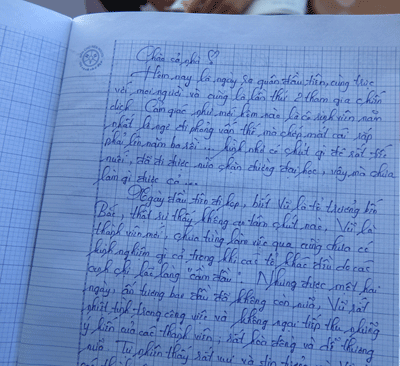 Chào cả nhà ♡
Hôm nay là ngày sơ quân đầu tiên, cùng trực
với mọi người và cũng là lần thứ 2 tham gia chiến
dịch. Cảm giác như mới hôm nào là cô sinh viên năm
nhất lơ ngơ đi phỏng vấn thế mà chớp mắt cái sắp
phải lên năm ba rồi... hình như có chút gì đó rất tiếc
nuối, đã đi được nửa chặn đường đại học, vậy mà chưa
làm gì được cả...
Ngày đầu tiên đi họp, biết Vũ là tổ trưởng
Bác, thật sự thấy không an tâm chút nào, Vũ là
thành viên mới, chưa từng làm việc qua, cũng chưa có
kinh nghiệm gì cả trong khi các tổ khác đều do các
anh chị lão làng "cầm đầu". Nhưng được một hai
ngày, ấn tượng ban đầu đã không còn nữa, Vũ rất
nhiệt tình trong công việc và không ngại tiếp thu những
ý kiến của các thành viên, rất hòa đồng và dễ thương
nữa. Tự nhiên thấy rất vui và tin tưởng